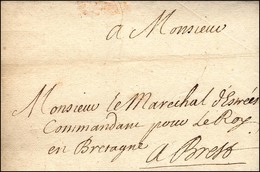 a Monsieur
Monsieur le Marechal d'Estrées
Commandant pour Le Roy
en Bretagne
A Brest